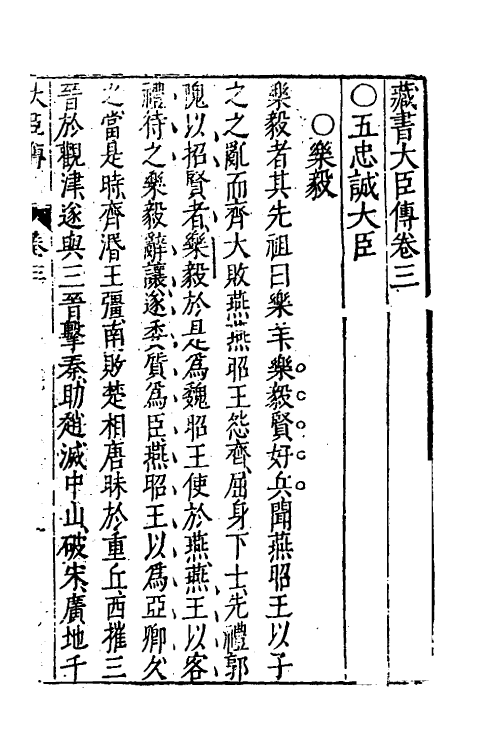 藏書大臣傳卷三
〇五忠誠大臣
〇樂毅
樂毅者其先祖曰樂羊樂毅賢好兵聞燕昭王以子
之之亂而齊大敗燕燕昭王怨齊屈身下士先禮郭
隗以招賢者樂毅於是爲魏昭王使於燕燕王以客
禮待之樂毅辭讓遂委質爲臣燕昭王以爲亞卿久
之當是時齊湣王彊南敗楚相唐昧於重丘西摧三
晉於觀津遂與三晉擊秦助趙滅中山破宋廣地千
大臣傳 卷三